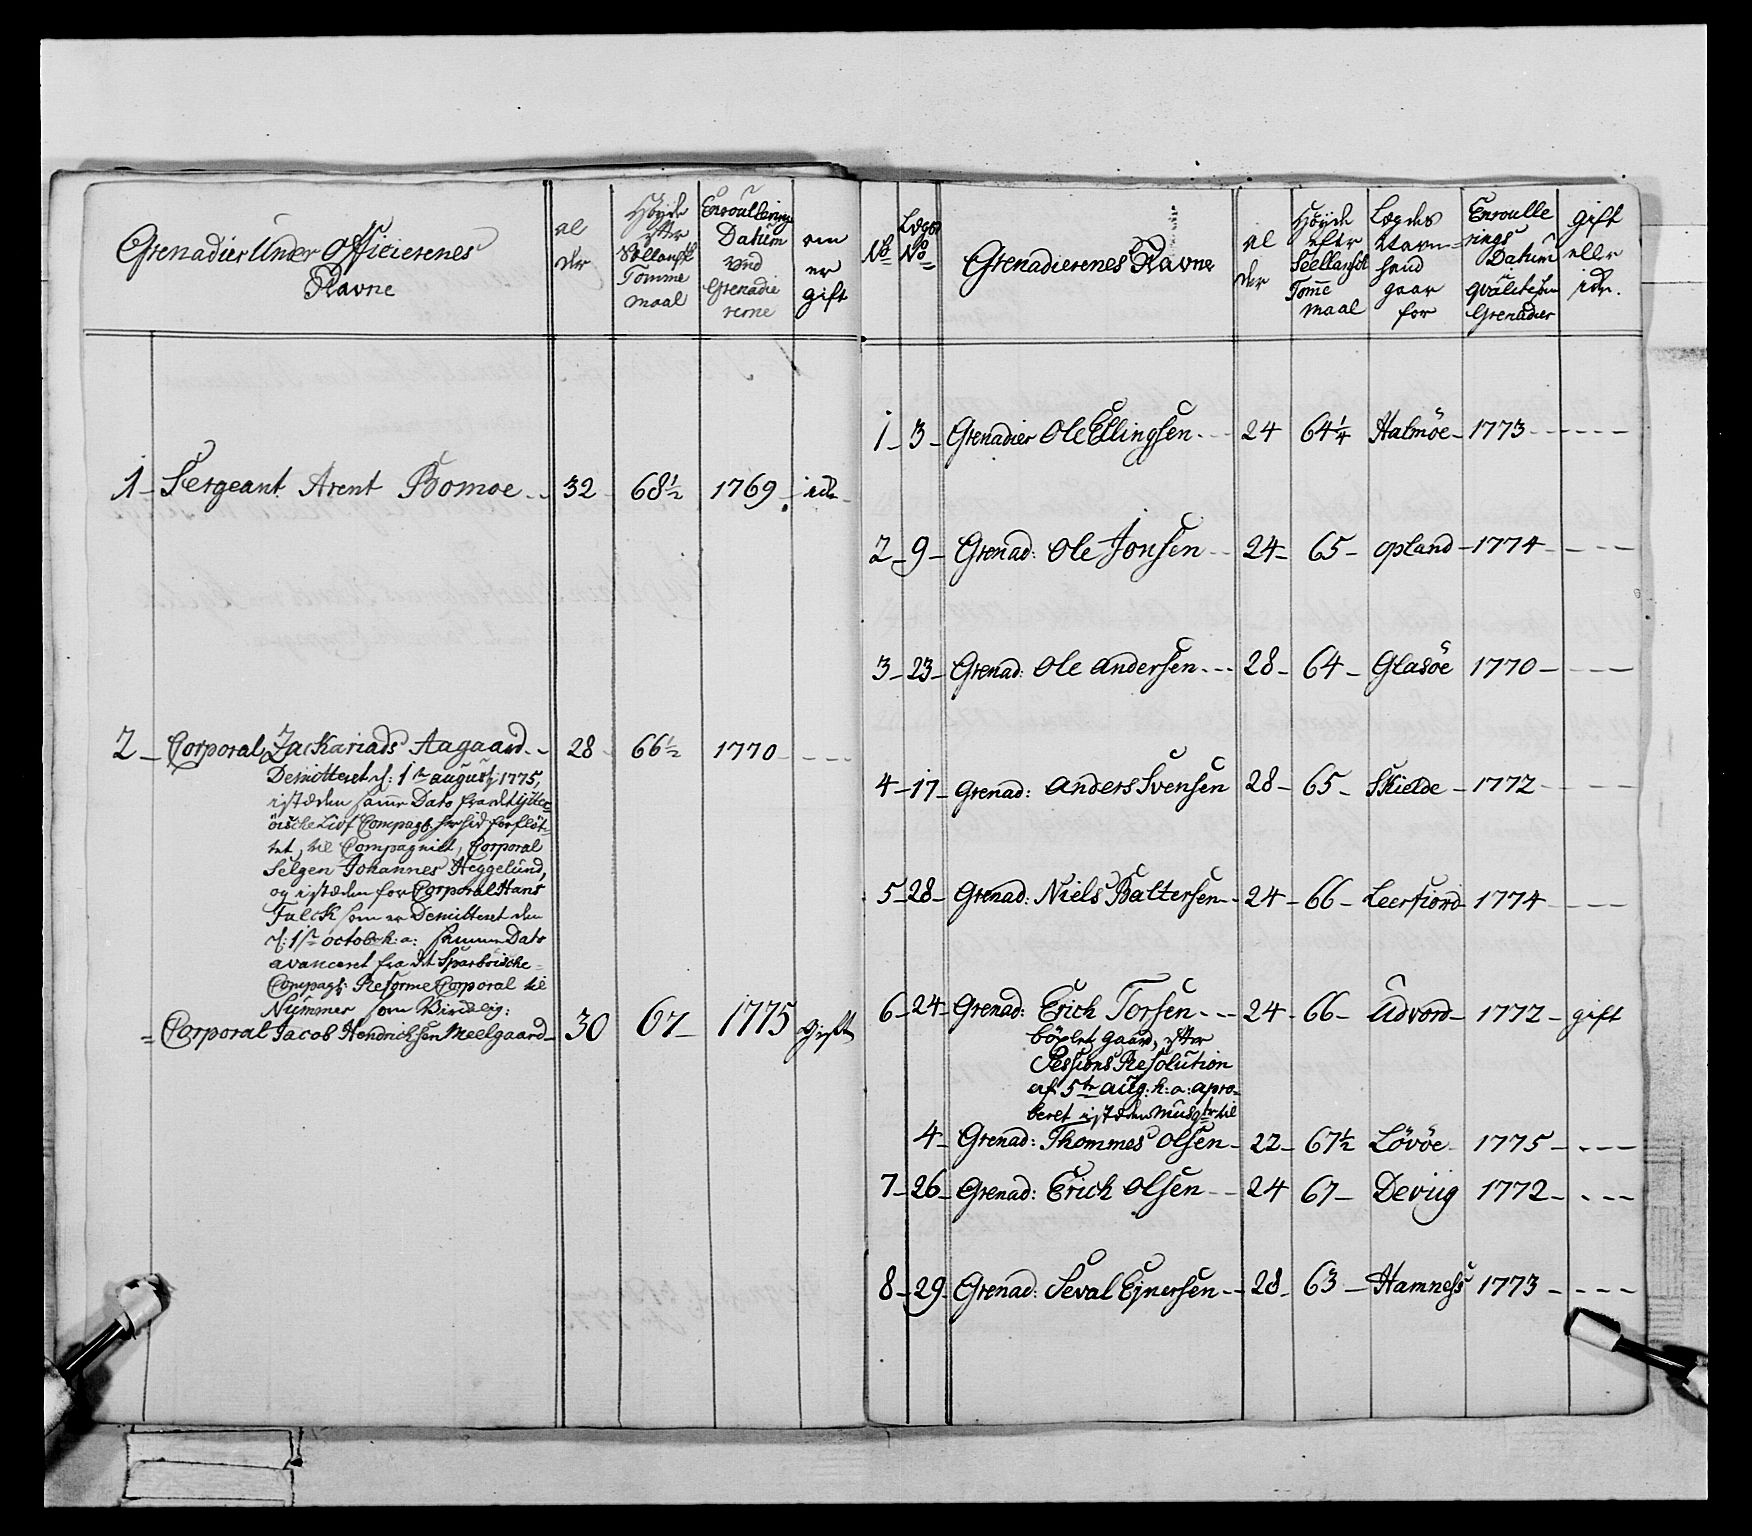 Grenadier Under Officierenes
Navne
al
der
Höyde
efter
Siellansk
Tomme
maal
Enroullerings
Datum
ved
Grenadie
rerne
om
er
gift
1 Sergeant Arent Bomoe 32 68½ 1769 ide
2 Corporal Zackariads Aagaard 28 66½ 1770
Demitteret d: 1te august 1775,
istæden samme Dato fra det ytter
öische Livf Compag: herhid forflöt
tet, til Compagniet, Corporal
Selgen Johannes Heggelund,
og istæden for Corporal Hans
Falck som er Demitteret den
d: 1ste octob: h: a: samme Dato
avanceret fra det Sparböische
Compag: Reforme Corporal til
Nummer som Virkelig:
= Corporal Jacob Hendrichsen Meelgaard 30 67 1775 gift
No
Lægs
No
Grenadierenes Navne
al
der
Höyde
efter
Seellansk
Tomme
maal
Lægdes
Navn
hand
gaar
for
Enroulle
rings
Datum
qvalitesen
Grenadier
gift
eller
ide.
1 3 Grenadier Ole Ellingsen 24 64¼ Halmöe 1773
2 9 Grenad: Ole Jonsen 24 65 opland 1774
3 23 Grenad: Ole andersen 28 64 Glasöe 1770
4 17 Grenad: anders Svensen 28 65 Skielde 1772
5 28 Grenad: Niels Baltersen 24 66 Leerfiord 1774
6 24 Grenad: Erich Torsen 24 66 Udvord 1772 gift
böxlet gaard, efter
Sessions Resolution
af 5te aug: h: a: apro
beret istæden Musqtr til
4 Grenad: Thommes olsen 22 67½ Lövöe 1775
7 26 Grenad: Erich olsen 24 67 Deviig 1772
8 29 Grenad: Seval Ejnersen 28 63 Hamness 1773